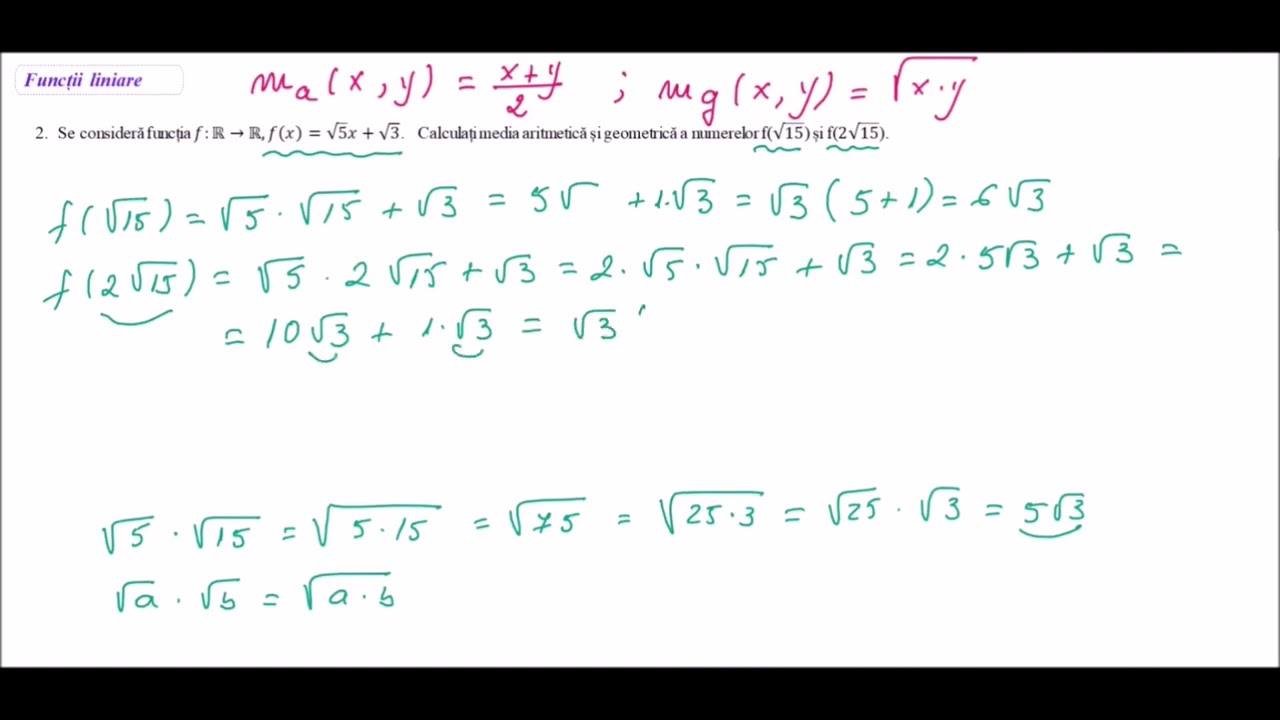 Funcții liniare
mₐ(x, y) = (x+y)/2 ; m_g(x, y) = √(x·y)
2. Se consideră funcția f : ℝ → ℝ, f(x) = √5x + √3. Calculați media aritmetică și geometrică a numerelor f(√15) și f(2√15).
f(√15) = √5 · √15 + √3 = 5√ + 1·√3 = √3 (5+1) = 6√3
f(2√15) = √5 · 2√15 + √3 = 2·√5·√15 + √3 = 2·5√3 + √3 =
= 10√3 + 1·√3 = √3
√5 · √15 = √(5·15) = √75 = √(25·3) = √25 · √3 = 5√3
√a · √b = √(a·b)